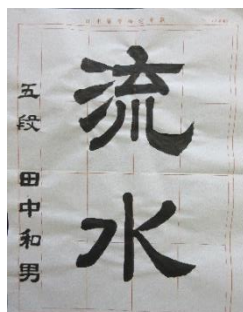 流水
五段 田中和男